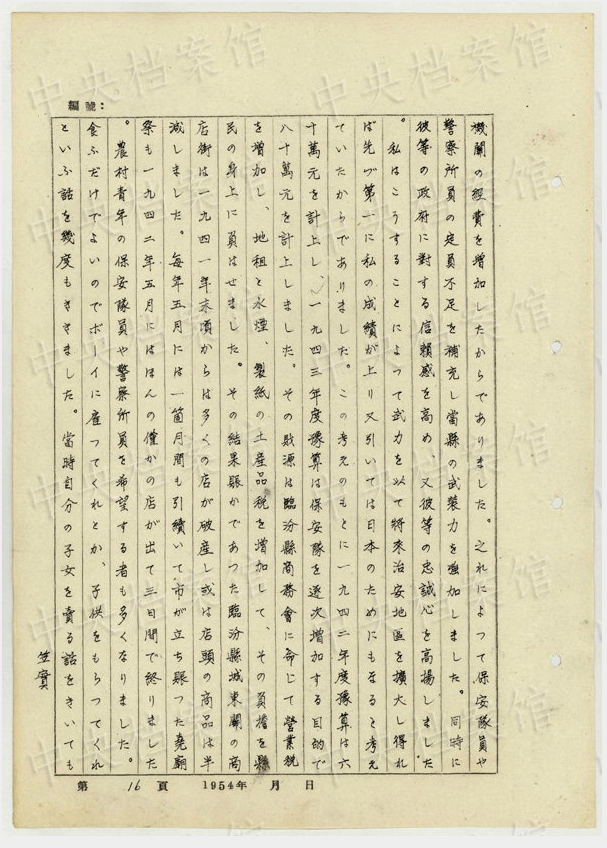 編號：
機關の経費を増加したからでありました。之れによつて保安隊員や
警察所員の定員不足を補充し當縣の武裝力を強加しました。同時に
彼等の政府に對する信頼感を高め、又彼等の忠誠心を高揚しました
。私はこうすることによつて武力を以て將來治安地區を擴大し得れ
ば先づ第一に私の成績が上り又引いては日本のためにもなると考え
ていたからでありました。この考えのもとに一九四二年度豫算は六
十萬元を計上し、一九四三年度豫算は保安隊を逐次増加する目的で
八十萬元を計上しました。その財源は臨汾縣商務會に命じて營業税
を増加し、地租と水煙、製紙の土産品税を増加して、その負擔を縣
民の身上に負はせました。その結果賑かであつた臨汾縣城東關の商
店街は一九四一年末頃からは多くの店が破産し或は店頭の商品は半
減しました。毎年五月には一箇月間も引續いて市が立ち賑つた堯廟
祭も一九四二年五月にはほんの僅かの店が出て三日間で終りました
。農村青年の保安隊員や警察所員を希望する者も多くなりました。
食ふだけでよいのでボーイに雇つてくれとか、子供をもらつてくれ
といふ話を幾度もききました。當時自分の子女を賣る話をきいても
笠實
第 16 頁 1954年 月 日
中央档案馆